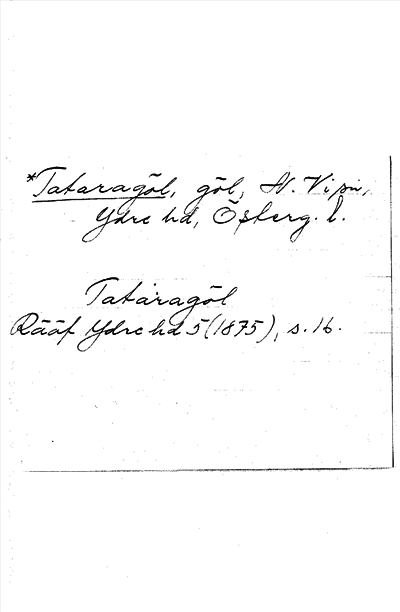 *Tataragöl, göl, N. Vi
Ydre hd, Österg. l.
Tataragöl
Rääf Ydre hd 5 (1875), s. 16.